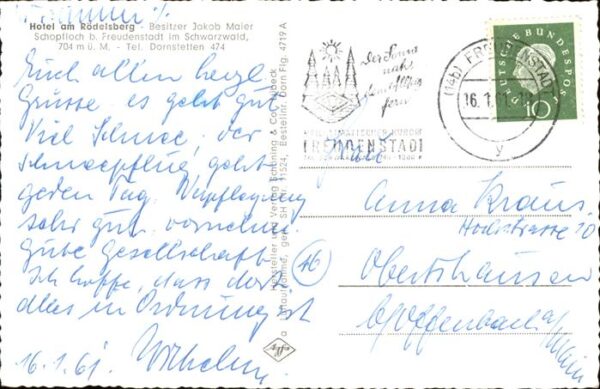 Hotel am Rödelsberg - Besitzer Jakob Maier
Schopfloch b. Freudenstadt im Schwarzwald,
704 m ü. M. - Tel. Dornstetten 474
Euch allen herzl.
Grüsse. es geht gut
Viel Schnee, der
Schneepflug geht
jeden Tag. Verpflegung
sehr gut. vornehm.
Gute Gesellschaft
Ich hoffe, dass dort
alles in Ordnung ist
16.1.61. Wilhelm.
Hersteller und Verlag Schöning & Co., Lübeck
SH 11524, Bestellnr. Dorn Flg. 4719 A
Agfa
Der Sonne
nah
fern
FREUDENSTADT
(14b) FREUDENSTADT
16.1.61
y
DEUTSCHE BUNDESPOST
10
Anna Kraus,
Hochstrasse 10
(46)
Obertshausen
b/Offenbach a/
Main